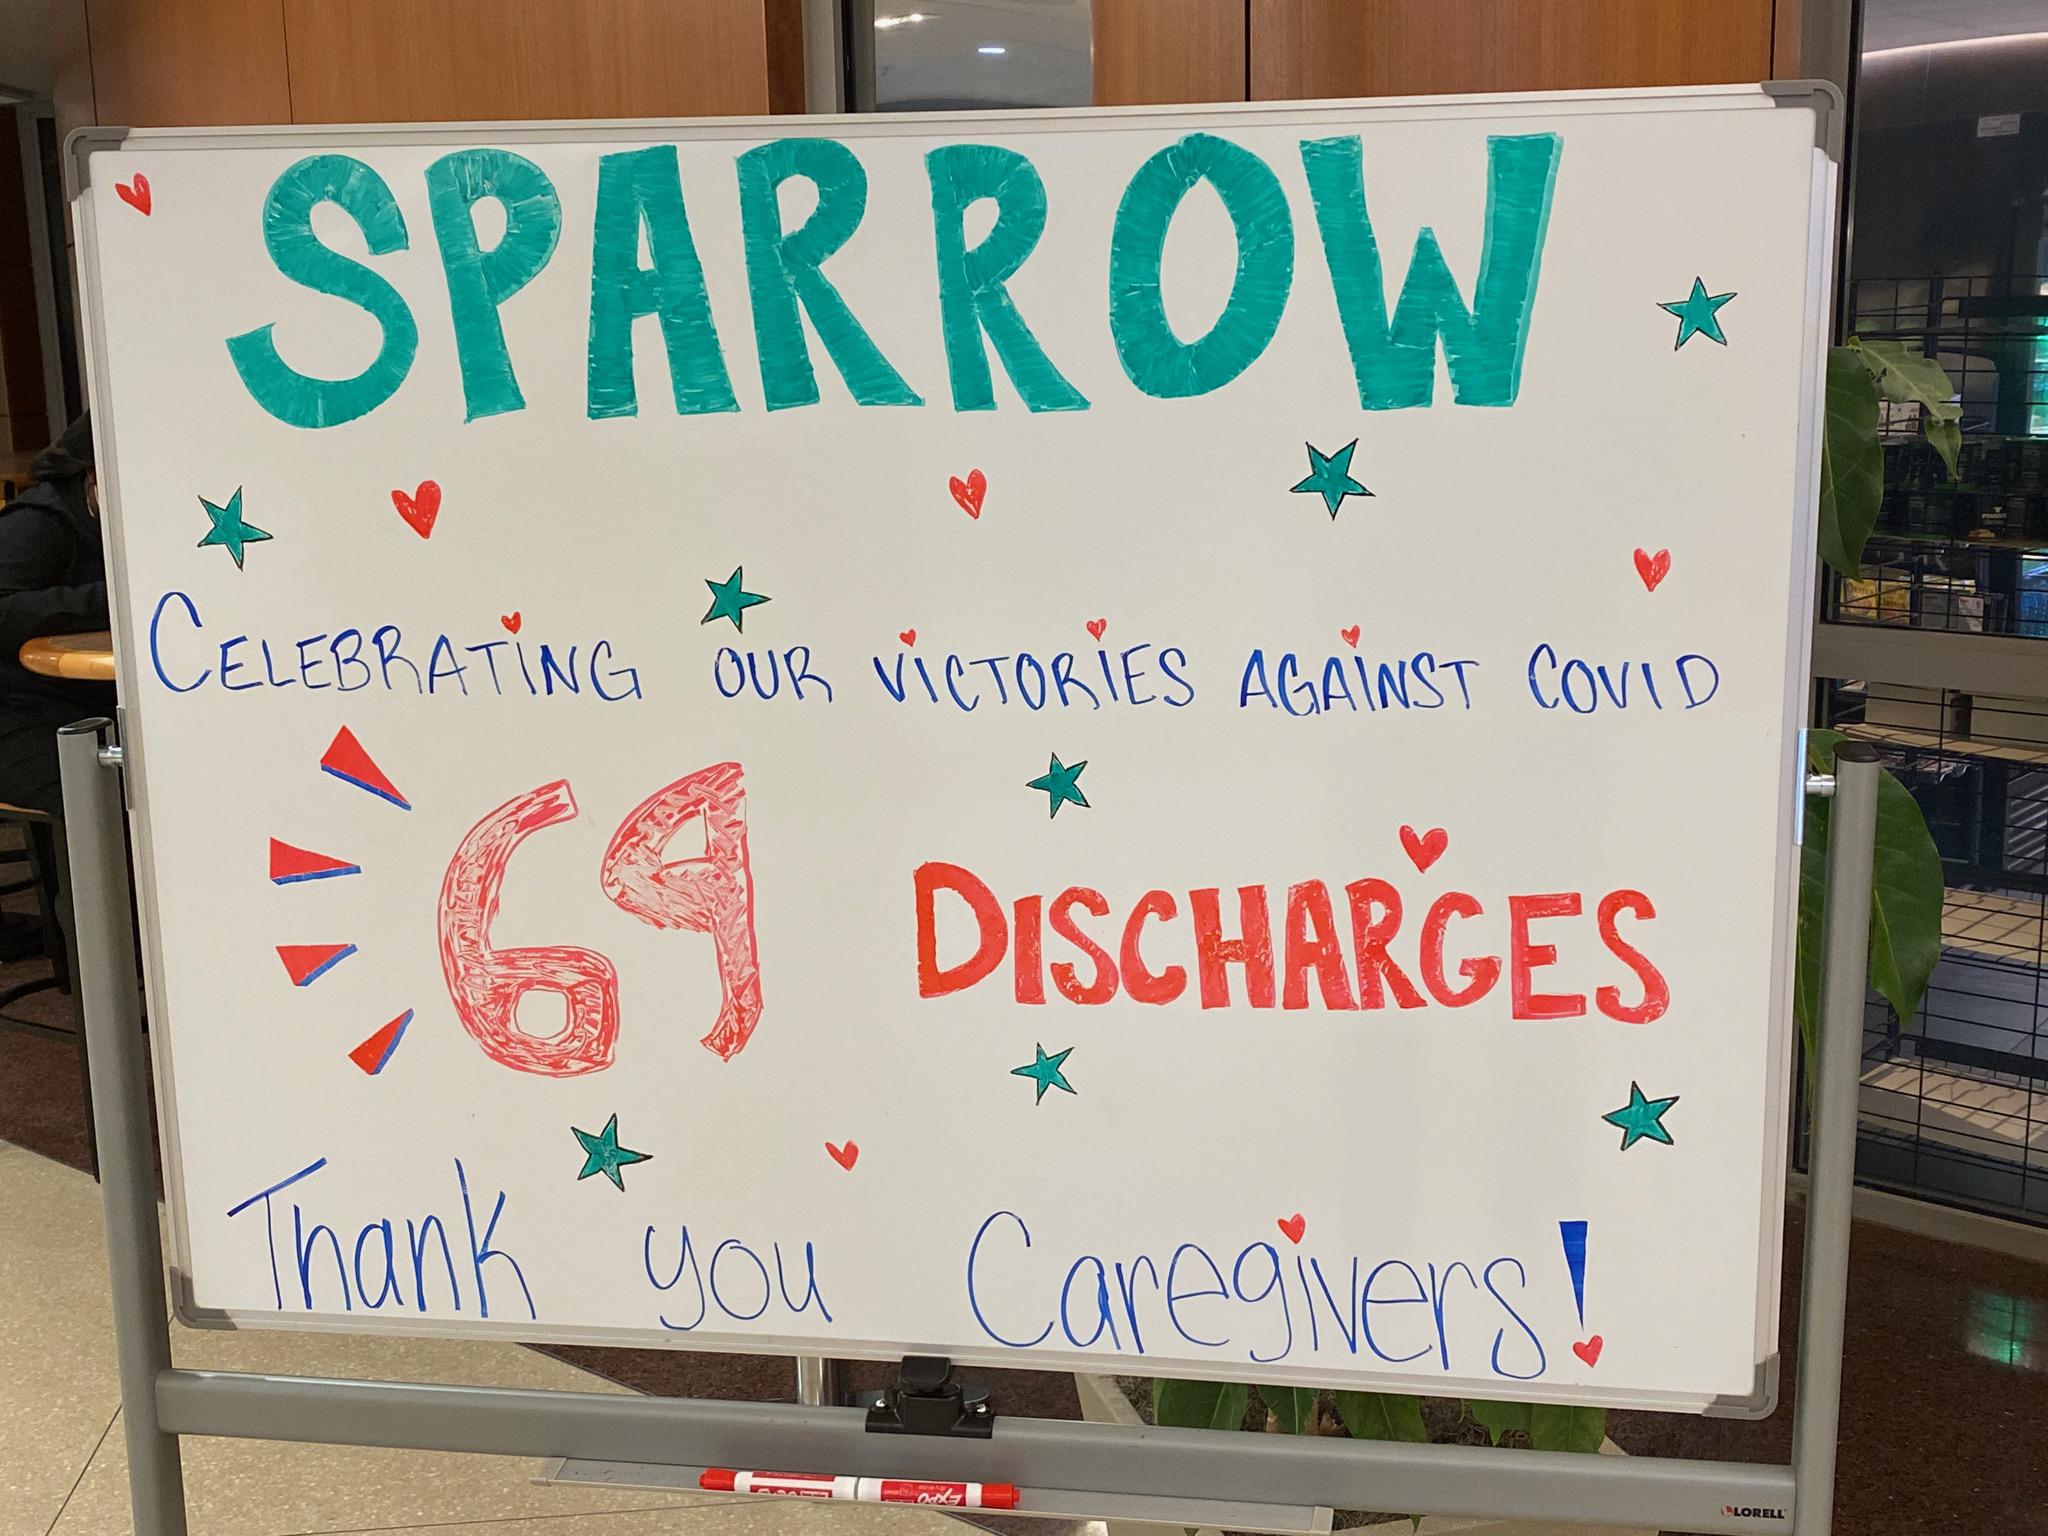 SPARROW
CELEBRATING OUR VICTORIES AGAINST COVID
69 DISCHARGES
Thank you Caregivers!
EXPO
LORELL